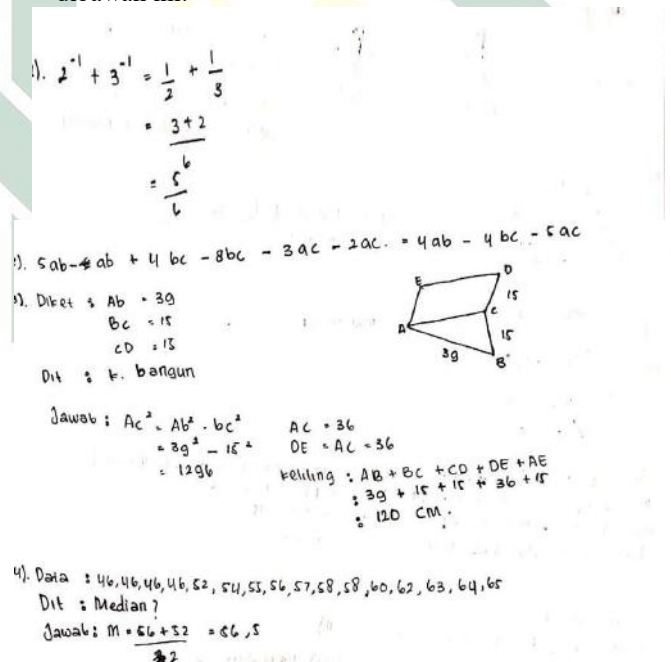 2⁻¹ + 3⁻¹ = 1/2 + 1/3
= 3+2/6
= 5/6
5ab - ab + 4 bc - 8bc - 3ac - 2ac. = 4ab - 4bc - 5ac
Diket : Ab = 39
BC = 15
CD = 15
Dit : k. bangun
E D
15
A C
15
39 B
Jawab : AC² = Ab² - bc²
= 39² - 15²
= 1296
AC = 36
DE = AC = 36
keliling : AB + BC + CD + DE + AE
: 39 + 15 + 15 + 36 + 15
: 120 CM.
4). Data : 46,46,46,46,52, 54,55,56,57,58,58,60,62,63,64,65
Dit : Median ?
Jawab : M = 56+52/2 = 56,5